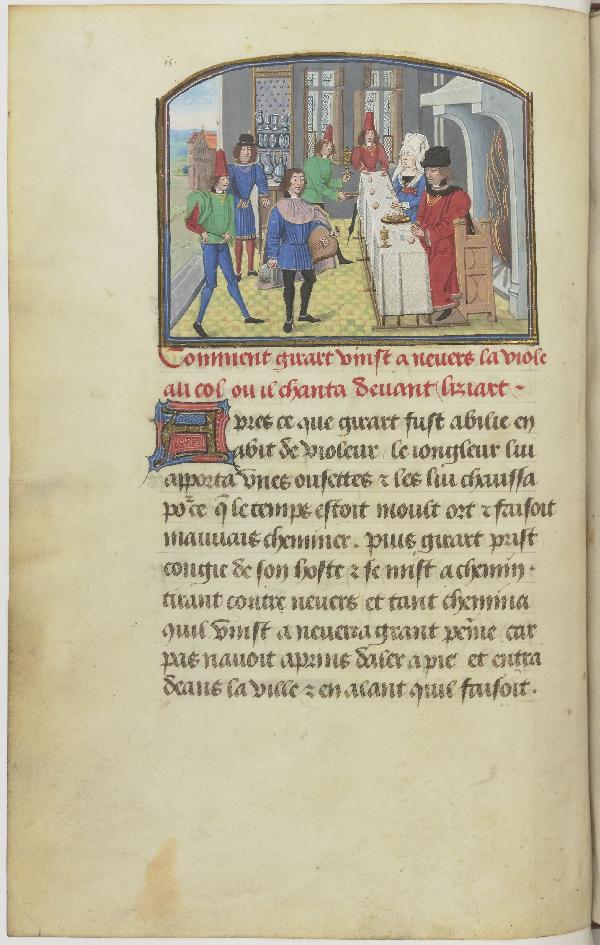 Comment girart vinst a nevers la viole
au col ou il chanta devant liziart
Apres ce que girart fust abilie en
abit de violeur le iongleur lui
apporta vnes ousettes ⁊ les lui chaussa
po᷑ ce q̄ le temps estoit moult ort ⁊ faisoit
mauuais cheminer. puis girart prist
congie de son hoste ⁊ se mist a chemin.
tirant contre nevers et tant chemina
quil vinst a nevers a grant peine car
pas nauoit aprins daler a pie et entra
dedans la ville ⁊ en alant quil faisoit.